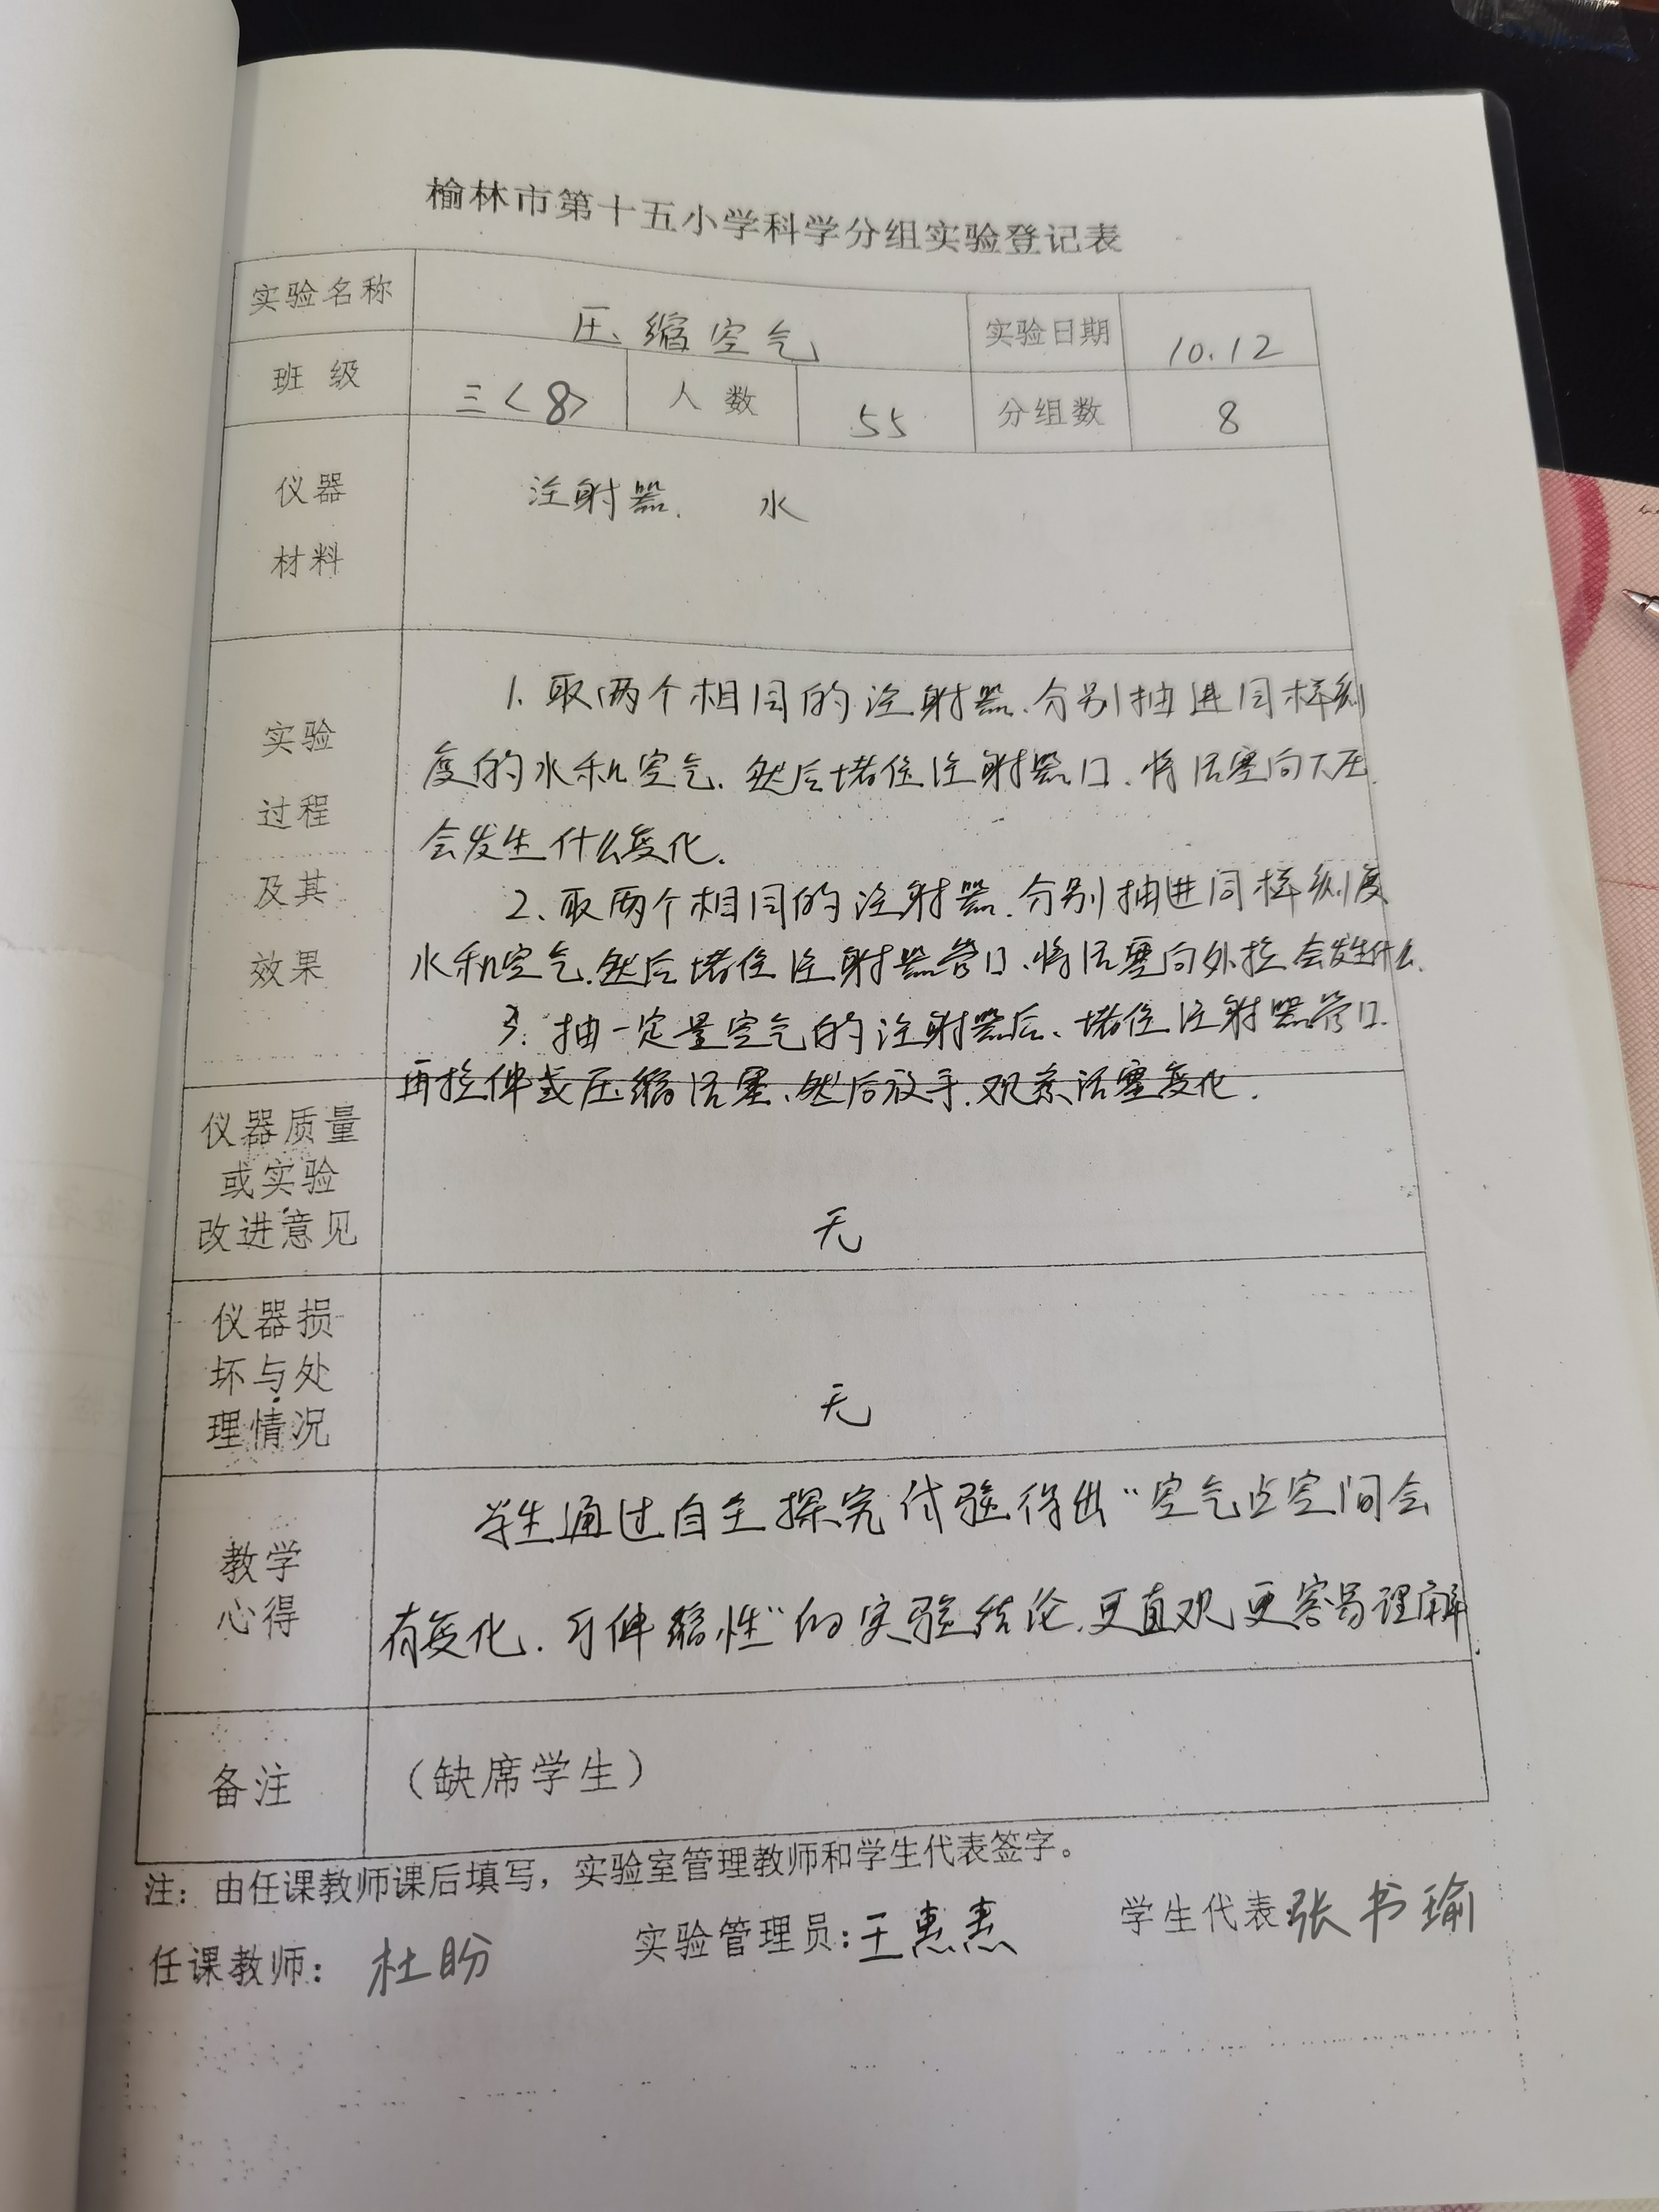 榆林市第十五小学科学分组实验登记表
实验名称 压缩空气 实验日期 10.12
班级 三<8> 人数 55 分组数 8
仪器 注射器、 水
材料
1、取两个相同的注射器、分别抽进同样刻
实验
度的水和空气、然后堵住注射器口、将活塞向下压
过程
会发生什么变化.
及其
2、取两个相同的注射器、分别抽进同样刻度
效果
水和空气.然后堵住注射器管口、将活塞向外拉会发生什么.
3、抽一定量空气的注射器后、堵住注射器管口.
再拉伸或压缩活塞、然后放手.观察活塞变化.
仪器质量
或实验
改进意见 无
仪器损
坏与处
理情况 无
学生通过自主探究体验得出“空气占空间会
教学
心得
有变化.可伸缩性”的实验结论.更直观更容易理解.
备注 （缺席学生）
注：由任课教师课后填写，实验室管理教师和学生代表签字。
任课教师： 杜盼 实验管理员：王惠惠 学生代表 张书瑜